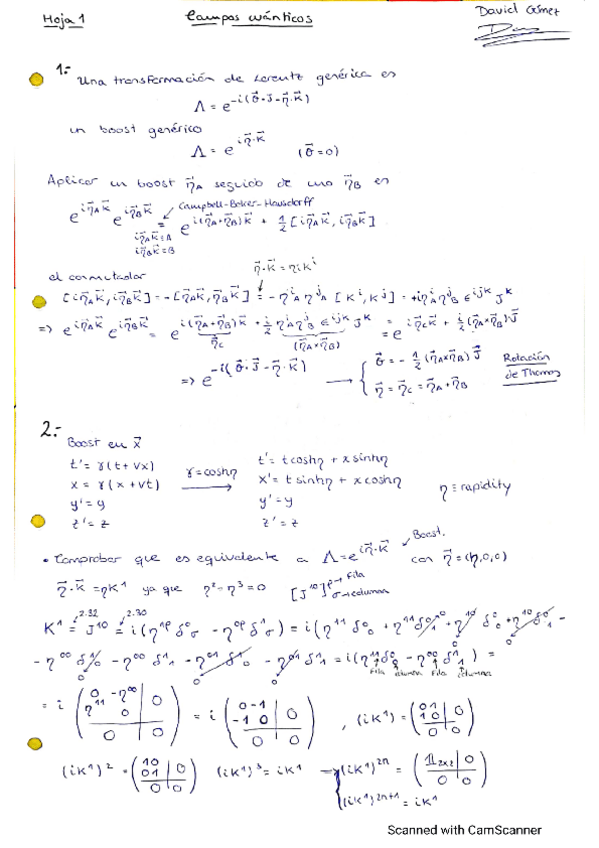 Hoja 1
Campos cuánticos
David Gómez
1.-
Una transformación de Lorentz genérica es
Λ = e^{-i(θ⃗·J⃗-η⃗·K⃗)}
un boost genérico
Λ = e^{iη⃗·K⃗} (θ⃗=0)
Aplicar un boost η⃗_A seguido de uno η⃗_B es
Campbell-Baker-Hausdorff
e^{iη⃗_A K⃗} e^{iη⃗_B K⃗} = e^{i(η⃗_A+η⃗_B)K⃗ + 1/2 [iη⃗_A K⃗, iη⃗_B K⃗]}
iη⃗_A K⃗ ≡ A
iη⃗_B K⃗ ≡ B
el conmutador
η⃗·K⃗ = η^i K^i
[iη⃗_A K⃗, iη⃗_B K⃗] = -[η⃗_A K⃗, η⃗_B K⃗] = -η^i_A η^j_A [K^i, K^j] = +iη^i_A η^j_B ε^{ijk} J^k
=> e^{iη⃗_A K⃗} e^{iη⃗_B K⃗} = e^{i(η⃗_A+η⃗_B)K⃗ + i/2 η^i_A η^j_B ε^{ijk} J^k} = e^{iη⃗_C K⃗ + i/2 (η⃗_A×η⃗_B)J⃗}
η⃗_C
(η⃗_A×η⃗_B)
=> e^{-i(θ⃗·J⃗-η⃗·K⃗)} → { θ⃗ = -1/2 (η⃗_A×η⃗_B) J⃗
η⃗ = η⃗_C = η⃗_A+η⃗_B
Rotación
de Thomas
2.-
Boost en x⃗
t' = γ(t+vx)
x = γ(x+vt)
y' = y
z' = z
γ = coshη →
t' = t coshη + x sinhη
x' = t sinhη + x coshη
y' = y
z' = z
η ≡ rapidity
• Comprobar que es equivalente a Λ = e^{iη⃗·K⃗} Boost. con η⃗ = (η,0,0)
η⃗·K⃗ = ηK^1 ya que η^2 = η^3 = 0 [J^{10}]^ρ_σ → Fila → columna
2.32 2.30
K^1 = J^{10} = i(η^{1ρ} δ^0_σ - η^{0ρ} δ^1_σ) = i(η^{11} δ^0_0 + η^{11} δ^0_1 + η^{10} δ^0_0 + η^{10} δ^0_1 -
- η^{00} δ^1_0 - η^{00} δ^1_1 - η^{01} δ^1_0 - η^{01} δ^1_1 = i(η^{11} δ^0_0 - η^{00} δ^1_1) =
fila columna fila columna
= i (0 -η^{00} | 0
η^{11} 0 | 0
0 | 0) = i (0 -1 | 0
-1 0 | 0
0 | 0), (iK^1) = (0 1 | 0
1 0 | 0
0 | 0)
(iK^1)^2 = (1 0 | 0
0 1 | 0
0 | 0) (iK^1)^3 = iK^1 → { (iK^1)^{2n} = (𝟙_{2x2} | 0
0 | 0)
(iK^1)^{2n+1} = iK^1
Scanned with CamScanner